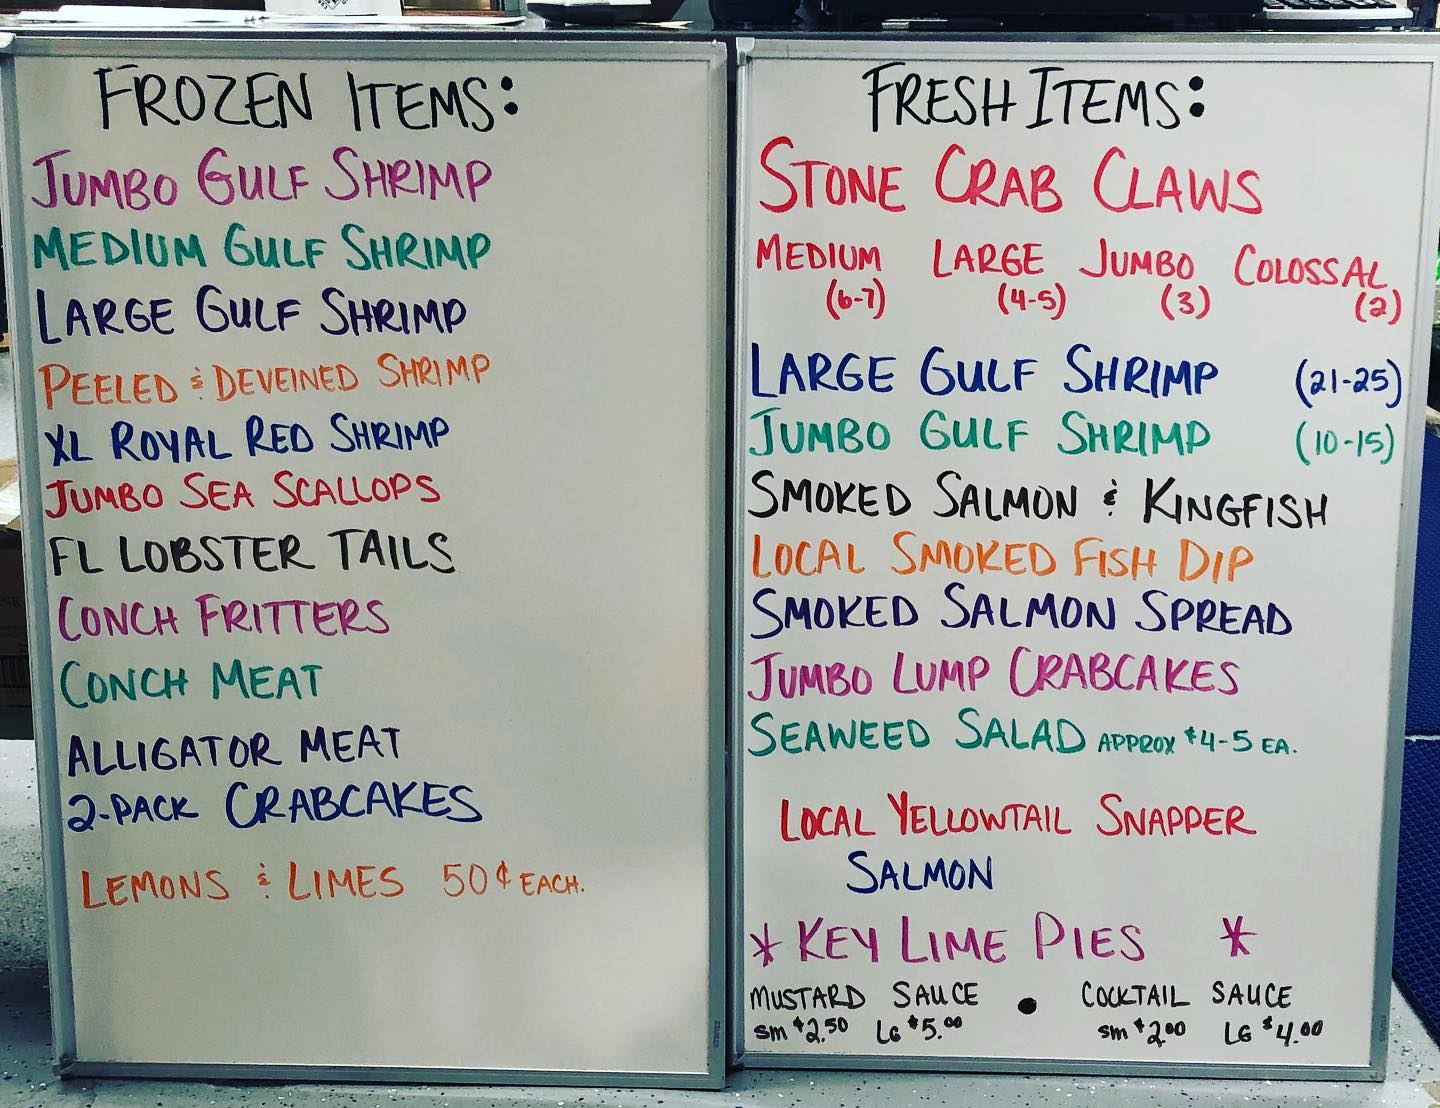 FROZEN ITEMS:
JUMBO GULF SHRIMP
MEDIUM GULF SHRIMP
LARGE GULF SHRIMP
PEELED & DEVEINED SHRIMP
XL ROYAL RED SHRIMP
JUMBO SEA SCALLOPS
FL LOBSTER TAILS
CONCH FRITTERS
CONCH MEAT
ALLIGATOR MEAT
2-PACK CRABCAKES
LEMONS & LIMES 50¢ EACH.
FRESH ITEMS:
STONE CRAB CLAWS
MEDIUM LARGE JUMBO COLOSSAL
(6-7) (4-5) (3) (2)
LARGE GULF SHRIMP (21-25)
JUMBO GULF SHRIMP (10-15)
SMOKED SALMON & KINGFISH
LOCAL SMOKED FISH DIP
SMOKED SALMON SPREAD
JUMBO LUMP CRABCAKES
SEAWEED SALAD APPROX $4-5 EA.
LOCAL YELLOWTAIL SNAPPER
SALMON
* KEY LIME PIES *
MUSTARD SAUCE • COCKTAIL SAUCE
SM $2.50 LG $5.00 SM $2.00 LG $4.00